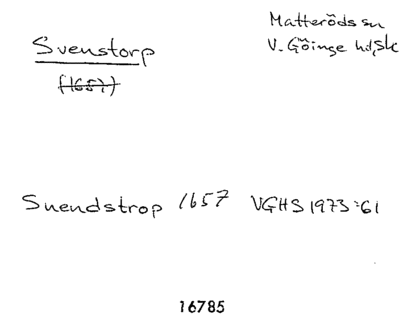 Svenstorp
(1657)
Matteröds sn
V. Göinge hd, Sk
Suendstrop 1657 VGHS 1973:61
16785